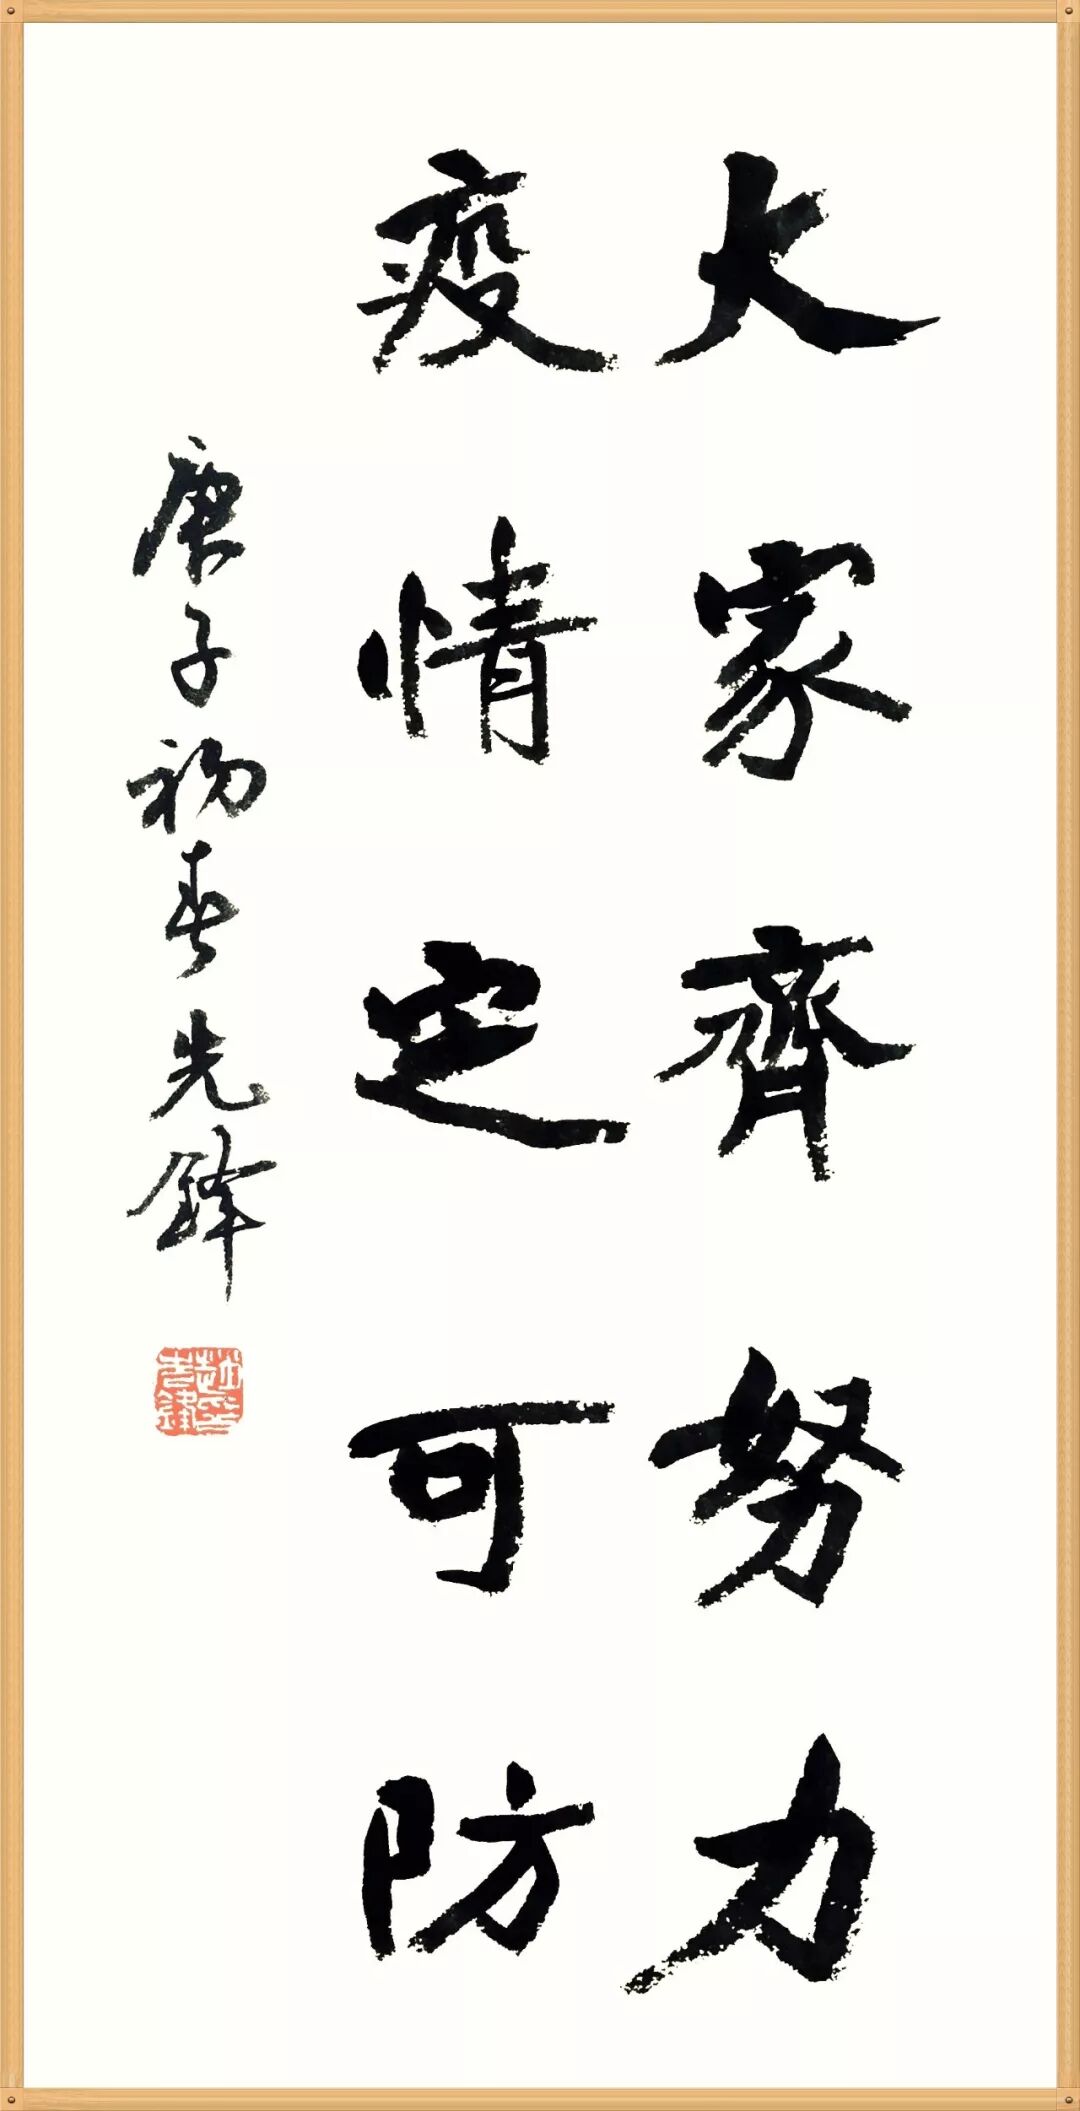 大家齊努力
疫情定可防
庚子初春先鋒
趙先鋒印